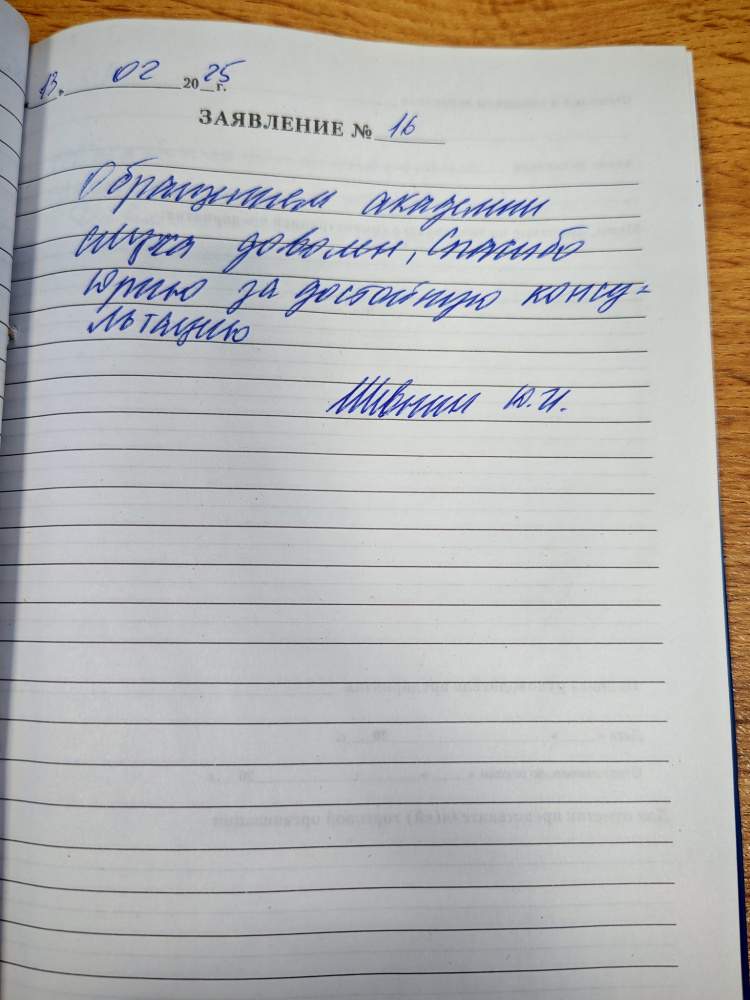 13. 02 2025 г.
ЗАЯВЛЕНИЕ № 16
Обращением академии
слуха доволен, Спасибо
Юрию за достойную консу-
льтацию
Шивнин Ю.И.